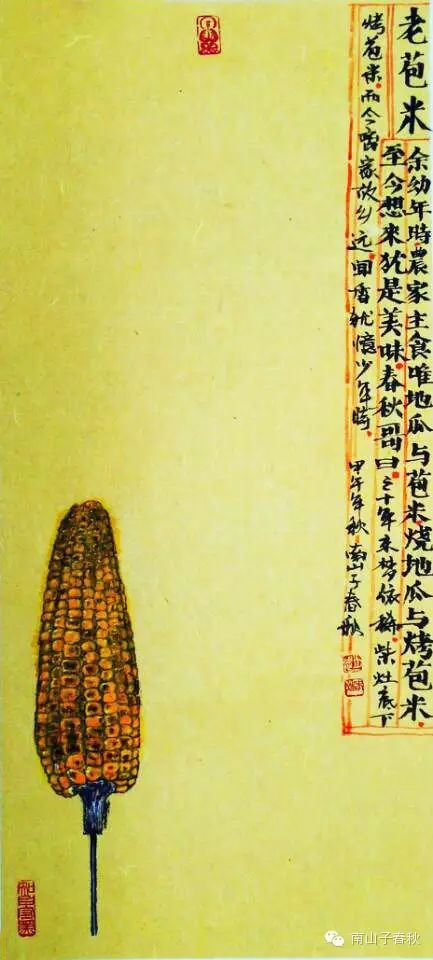 老苞米
余幼年時農家主食唯地瓜与苞米烧地瓜与烤苞米
至今想来犹是美味春秋哥曰三十年来梦依稀柴灶底下
烤苞米而今离家故乡远闻香就憶少年時
甲午年秋南山子春秋
南山子春秋